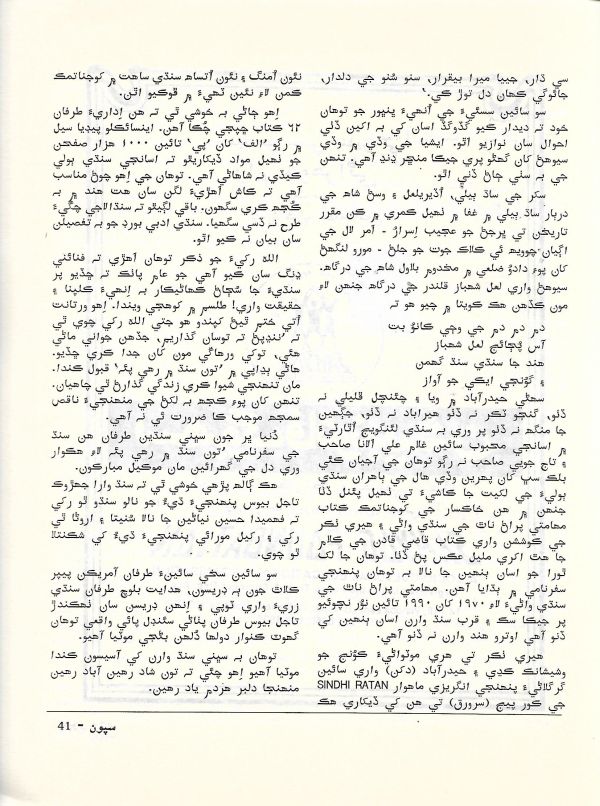 سي ڌار، جيبا ميرا بيقرار، سنو سُنو جي دلدار،
جائوگي ڪهان دل توڙ ڪي.“
سو سائين سسئيءَ جي آنهيءَ ڀنڀور جو توهان
خود ته ديدار ڪيو گڏوگڏ اسان کي به اکين ڏٺي
احوال سان نوازيو اٿو. ايشيا جي وڏي ۾ وڏي
سيوهڻ کان گهڻو پري جيڪا منڇر ڍنڍ آهي. تنهن
جي به سٺي ڄاڻ ڏني اٿو.
سکر جي ساڌ ٻيلي، اُڏيريلعل ۽ وسڻ شاهه جي
دربار ساڌ ٻيلي ۾ غفا ۾ ٺهيل ڪمري ۾ ڪن مقرر
تاريخن تي ٻرجن جو عجيب اِسرارُ - امر لال جي
اڳيان چوويهه ئي ڪلاڪ جوت جو جلڻ - مورو لنگهڻ
کان پوءِ دادوُ ضلعي ۾ مخدوم بلاول شاهه جي درگاهه.
سيوهڻ واري لعل شهباز قلندر جي درگاهه جنهن لاءِ
مون ڪڏهن هڪ ڪويتا ۾ چيو هو ته
دم دم دم جي وڄي کانؤ بت
آس پُڄائڄ لعل شهباز
هند جا سنڌي سنڌ گهمن
۽ گونجي ايڪي جو آواز
سهڻي حيدرآباد ۾ ويا ۽ چئنچل قليلي نه
ڏٺو، گنجو ٽڪر نه ڏٺو هيرآباد نه ڏٺو، جڳهين
جا منگهه نه ڏٺو پر وري به سنڌي لئنگويج اٿارٽيءَ
۾ اسانجي محبوب سائين غلام علي الانا صاحب
۽ تاج جويي صاحب نه رڳو توهان جي آجيان ڪئي
بلڪ سڀ کان پهرين وڏي هال جي ٻاهران سنڌي
ٻوليءَ جي لکيت جا ڪاشيءَ تي ٺهيل پئنل ڏٺا
جنهن ۾ هن خاڪسار جي کوجناتمڪ ڪتاب
مهامتي پراڻ ناٿ جي سنڌي واڻي ۽ هيري ٺڪر
جي ڪوششن واري ڪتاب قاضي قادن جي ڪلام
جا هٿ اکري مليل عڪس پڻ ڏٺا. توهان جا لک
ٿورا جو اسان ٻنهين جا نالا به توهان پنهنجي
سفرنامي ۾ ٻڌايا آهن. مهامتي پراڻ ناٿ جي
سنڌي واڻيءَ لاءِ ۱۹۷۰ کان ۱۹۹۰ تائين نُور نچوئيو
پر جيڪا سڪ ۽ قرب سنڌ وارن اسان ٻنهين کي
ڏنو آهي اوترو هند وارن نه ڏنو آهي.
هيري ٺڪر تي هري موٽواڻيءَ کُونج جو
وشيشانڪ ڪڍي ۽ حيدرآباد (دکن) واري سائين
گرگلاڻيءَ پنهنجي انگريزي ماهوار SINDHI RATAN
جي ڪور پيج (سرورق) تي هن کي ڏيکاري هڪ
نئون اُمنگ ۽ نئون اُتساهه سنڌي ساهت ۾ کوجناتمڪ
ڪمن لاءِ نئين ٽهيءَ ۾ ڦوڪيو اٿن.
اهو ڄاڻي به خوشي ٿي ته هن اِداريءَ طرفان
۶۲ ڪتاب ڇپجي چُڪا آهن. اينسائيڪلو پيڊيا سيل
۾ رڳو ”الف“ کان ”پي“ تائين ۱۰۰۰ هزار صفحن
جو ٺهيل مواد ڏيکاريئو ته اسانجي سنڌي ٻولي
ڪيڏي نه شاهاڻي آهي. توهان جي اِهو چوڻ مناسب
آهي ته ڪاش آهڙيءَ لڳن سان هت هند ۾ به
ڪُڇهه ڪري سگهون. باقي لڳيٿو ته سنڌالاجي چڱيءَ
طرح نه ڏسي سگهيا. سنڌي ادبي بورڊ جو به تفصيلن
سان بيان نه ڪيو اٿو.
الله رکيءَ جو ذڪر توهان اهڙي ته فنائتي
ڍنگ سان ڪيو آهي جو عام پاٺڪ ته ڇڏيو پر
سنڌيءَ جا سُڄاڻ ڪهاڻيڪار به اِنهيءَ ڪلپنا ۽
حقيقت واري! طلسم ۾ کوهجي ويندا. اِهو ورتانت
اُتي ختم ٿيڻ کپندو هو جتي الله رکي چوي ٿي
ته ”ننڍپڻ ته توسان گذاريم، جڏهن جواني ماڻي
هئي، توکي ورهاڱي مون کان جدا ڪري ڇڏيو.
هاڻي ٻڍاپي ۾ ”تون سنڌ ۾ رهي پئه“ قبول ڪندا.
مان تنهنجي شيوا ڪري زندگي گذارڻ ٿي چاهيان.
تنهن کان پوءِ ڪڇهه به لکڻ جي منهنجيءَ ناقص
سمجهه موجب ڪا ضرورت ئي نه آهي.
دُنيا پر جون سڀني سنڌين طرفان هن سنڌ
جي سفرنامي ”تون سنڌ ۾ رهي پئه لاءِ هڪوار
وري دل جي گهرائين مان موڪيل مبارڪون.
هڪ ڳالهه پڙهي خوشي ٿي ته سنڌ وارا جهڙوڪ
تاجل بيوس پنهنجيءَ ڌيءُ جو نالو سنڌو ٿو رکي
ته فهميدا حسين نياڻين جا نالا سُنيتا ۽ ارونا ٿي
رکي ۽ رکيل مورائي پنهنجيءَ ڌيءُ کي شڪنتلا
ٿو چوي.
سو سائين سخي سائينءَ طرفان آمريڪن پيپر
ڪلاٿ جون به ڊريسون، هدايت بلوچ طرفان سنڌي
زريءَ واري ٽوپي ۽ اِنهن ڊريسن سان ٺهڪندڙ
تاجل بيوس طرفان پٺاڻي سئنڊل پائي واقعي توهان
گهوٽ ڪنوار دولها دُلهن بڻجي موٽيا آهيو.
توهان به سڀني سنڌ وارن کي آسيسون ڪندا
موٽيا آهيو اهو چئي ته تون شاد رهين آباد رهين
منهنجا دلبر هردم ياد رهين.
سپون - 41